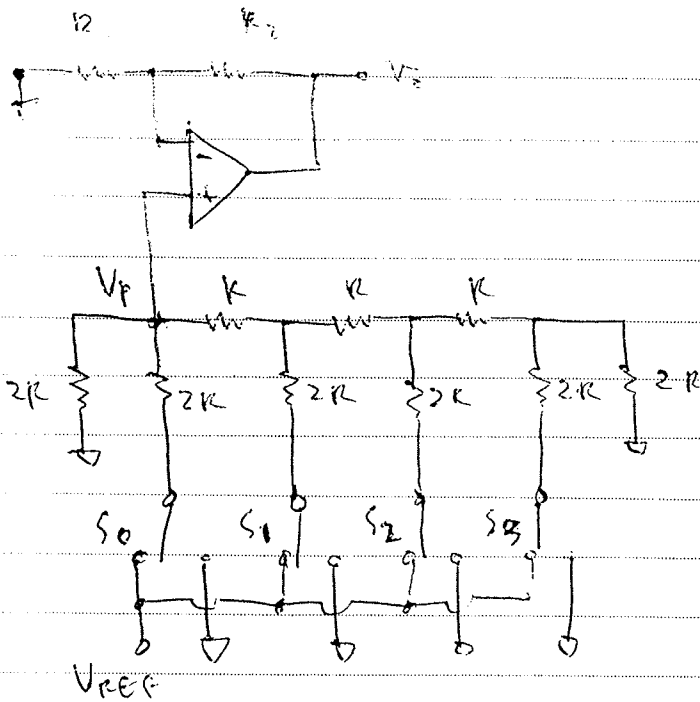 R
V₂
- +
Vp R R R
2R 2R 2R 2R 2R 2R
S0 S1 S2 S3
VREF